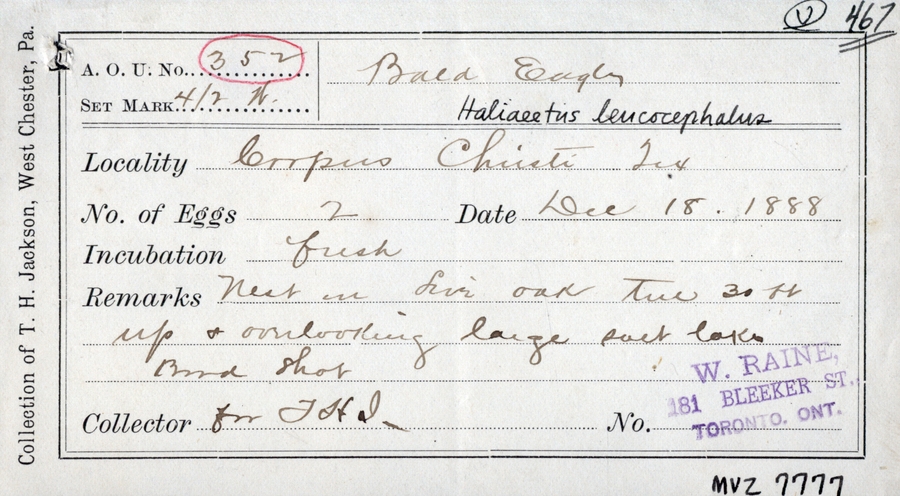 V 467
Collection of T. H. Jackson, West Chester, Pa.
A. O. U. No. 352
Bald Eagle
SET MARK 4/2 W.
Haliaeetus leucocephalus
Locality Corpus Christi Tex
No. of Eggs 2 Date Dec 18. 1888
Incubation fresh
Remarks Nest in live oak tree 30 ft
up & overlooking large salt lake
Bird Shot
W. RAINE,
181 BLEEKER ST.,
TORONTO, ONT.
Collector for T H J. No.
MVZ 7777